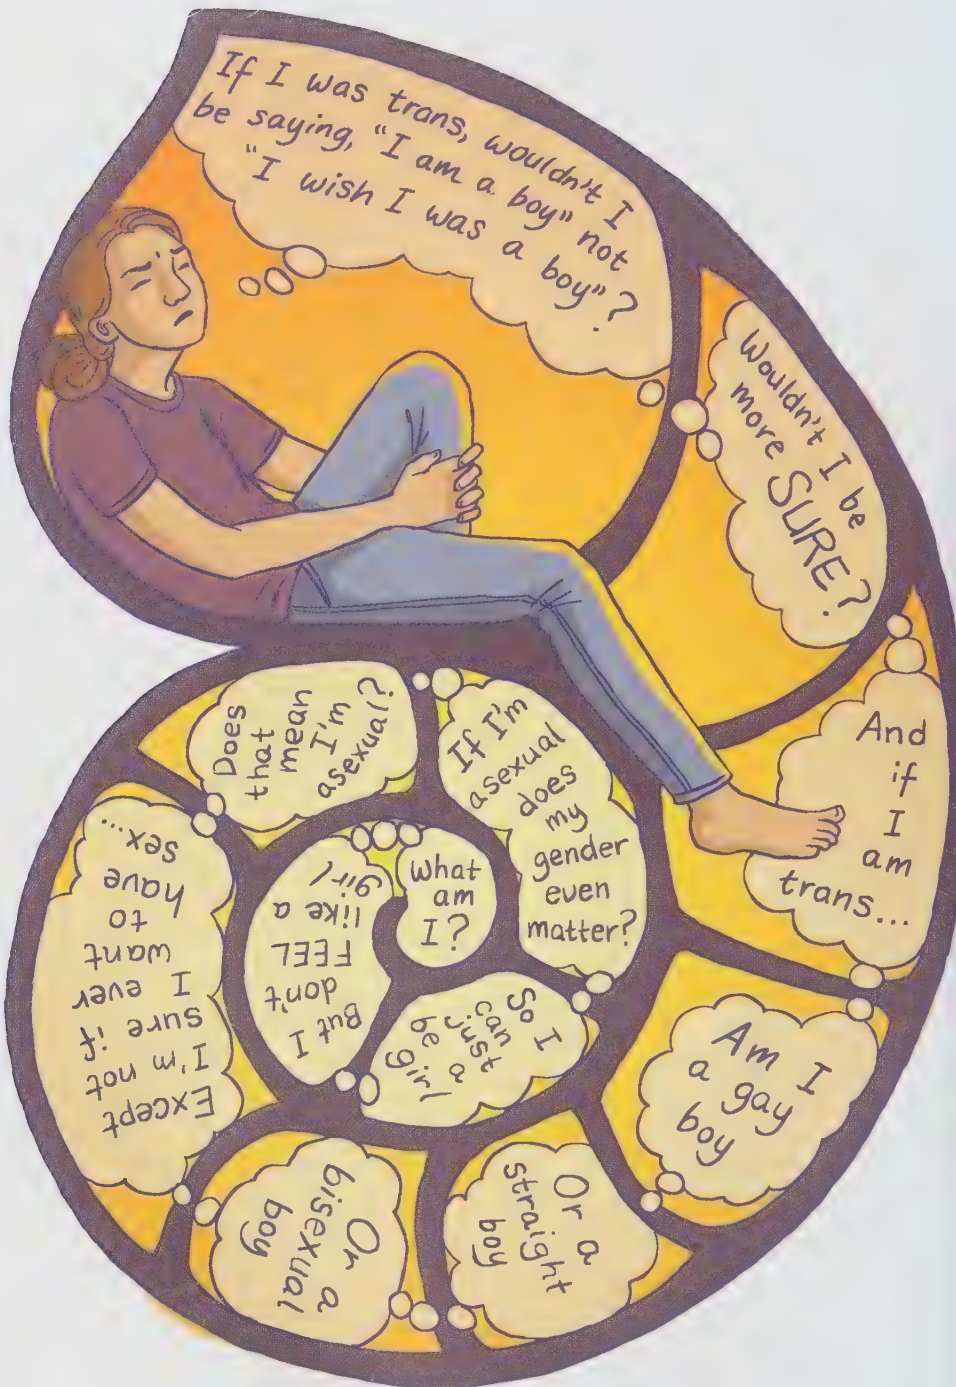 If I was trans, wouldn't I
be saying, "I am a boy" not
"I wish I was a boy"?
Wouldn't I be
more
SURE?
And
if
I
am
trans...
Am I
a gay
boy
Or a
straight
boy
Or a
bisexual
boy
Except
I'm not
sure if
I ever
want
to
have
sex...
Does
that
mean
I'm
asexual?
If I'm
asexual
does
my
gender
even
matter?
So I
can
just
be a
girl
But I
don't
FEEL
like a
girl
What
am
I?